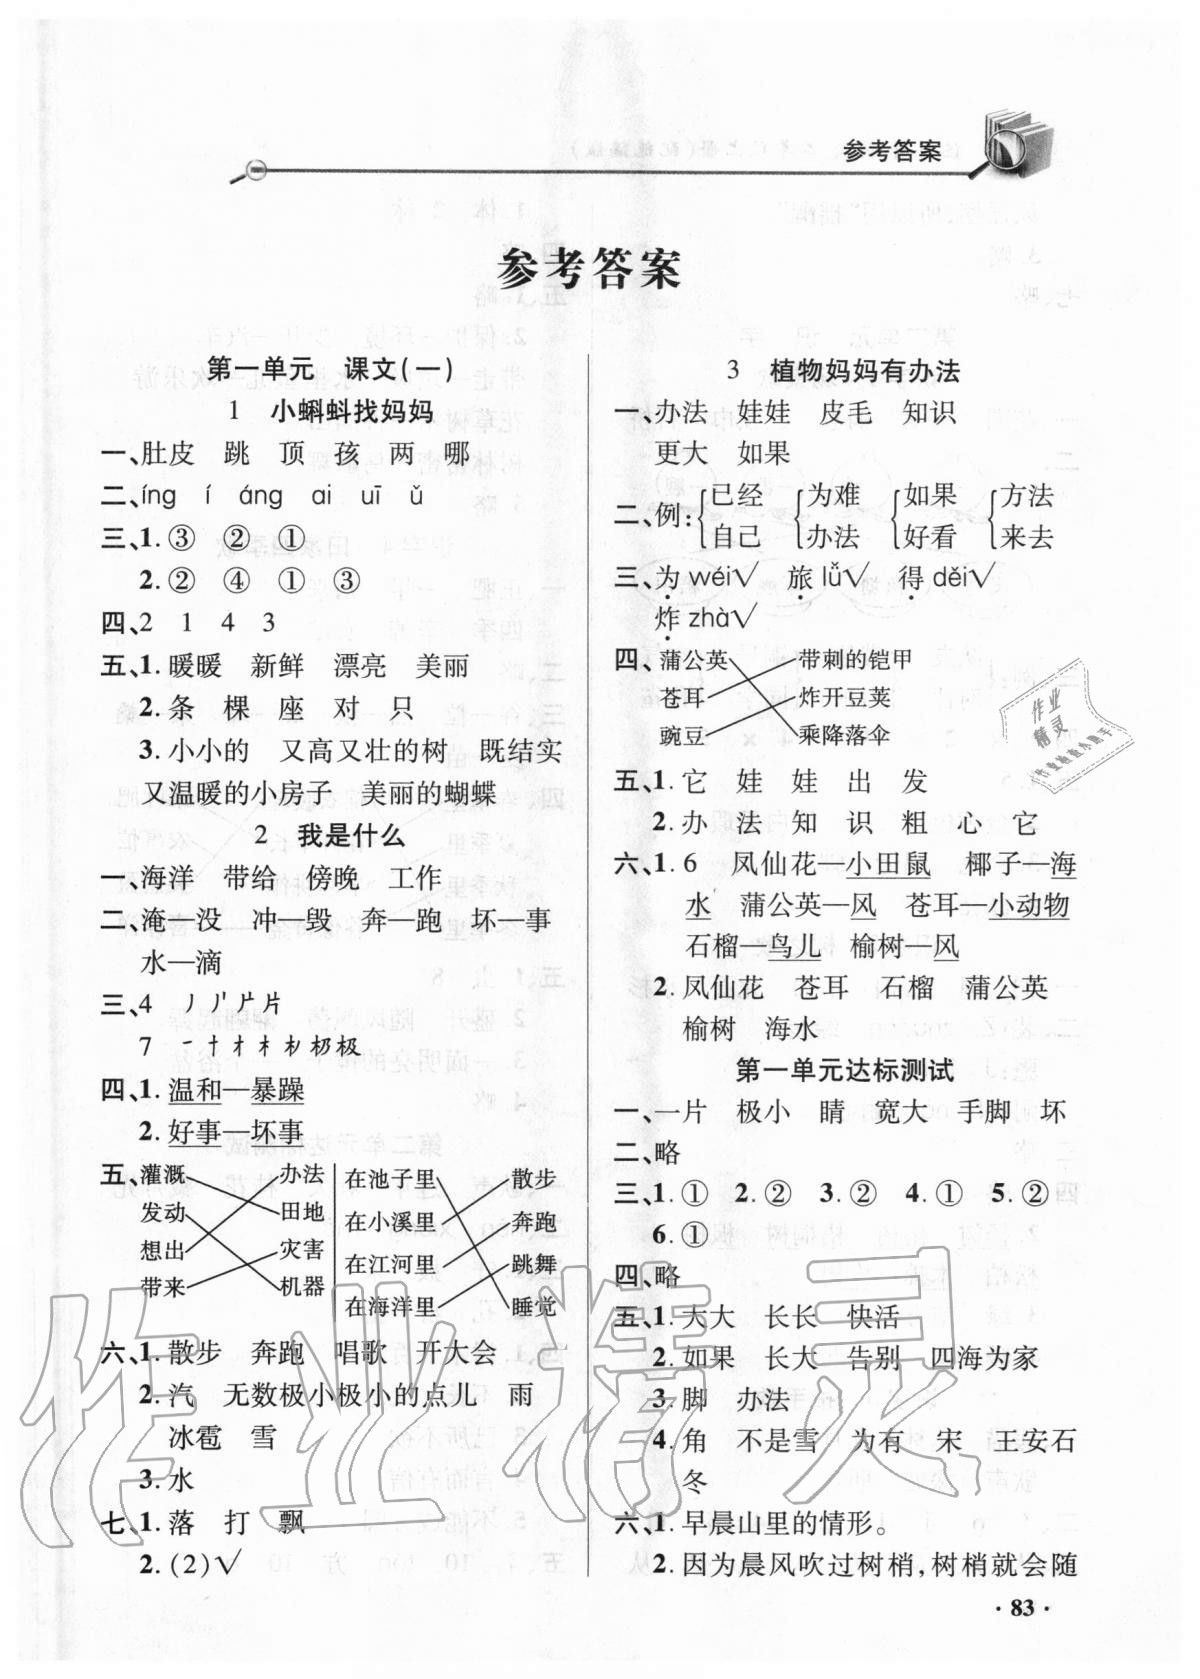 参考答案
参考答案
第一单元 课文(一)
1 小蝌蚪找妈妈
一、肚皮 跳 顶 孩 两 哪
二、íng í áng ai uī ǔ
三、1. ③ ② ①
2. ② ④ ① ③
四、2 1 4 3
五、1. 暖暖 新鲜 漂亮 美丽
2. 条 棵 座 对 只
3. 小小的 又高又壮的树 既结实
又温暖的小房子 美丽的蝴蝶
2 我是什么
一、海洋 带给 傍晚 工作
二、淹—没 冲—毁 奔—跑 坏—事
水—滴
三、4 丿 丿丨 片 片
7 一 十 才 木 朸 极 极
四、1. 温和—暴躁
2. 好事—坏事
五、灌溉 办法 在池子里 散步
发动 田地 在小溪里 奔跑
想出 灾害 在江河里 跳舞
带来 机器 在海洋里 睡觉
六、1. 散步 奔跑 唱歌 开大会
2. 汽 无数极小极小的点儿 雨
冰雹 雪
3. 水
七、1. 落 打 飘
2. (2)√
3 植物妈妈有办法
一、办法 娃娃 皮毛 知识
更大 如果
二、例:{已经 自己 {为难 办法 {如果 好看 {方法 来去
三、为 wéi√ 旅 lǚ√ 得 děi√
炸 zhà√
四、蒲公英 带刺的铠甲
苍耳 炸开豆荚
豌豆 乘降落伞
五、1. 它 娃 娃 出 发
2. 办 法 知 识 粗 心 它
六、1. 6 凤仙花—小田鼠 椰子—海
水 蒲公英—风 苍耳—小动物
石榴—鸟儿 榆树—风
2. 凤仙花 苍耳 石榴 蒲公英
榆树 海水
第一单元达标测试
一、一片 极小 睛 宽大 手脚 坏
二、略
三、1. ① 2. ② 3. ② 4. ① 5. ②
6. ①
四、略
五、1. 大大 长长 快活
2. 如果 长大 告别 四海为家
3. 脚 办法
4. 角 不是雪 为有 宋 王安石
冬
六、1. 早晨山里的情形。
2. 因为晨风吹过树梢,树梢就会随
· 83 ·
作业精灵
作业
精灵